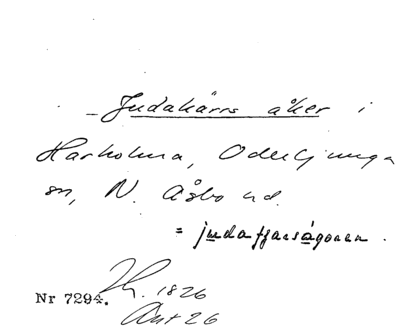 Judakärrs åker i
Harholma, Oderljunga
sn, N. Åsbo hd.
= judatjärsågorna.
Nr 7294. Th. 1826
Ant 26